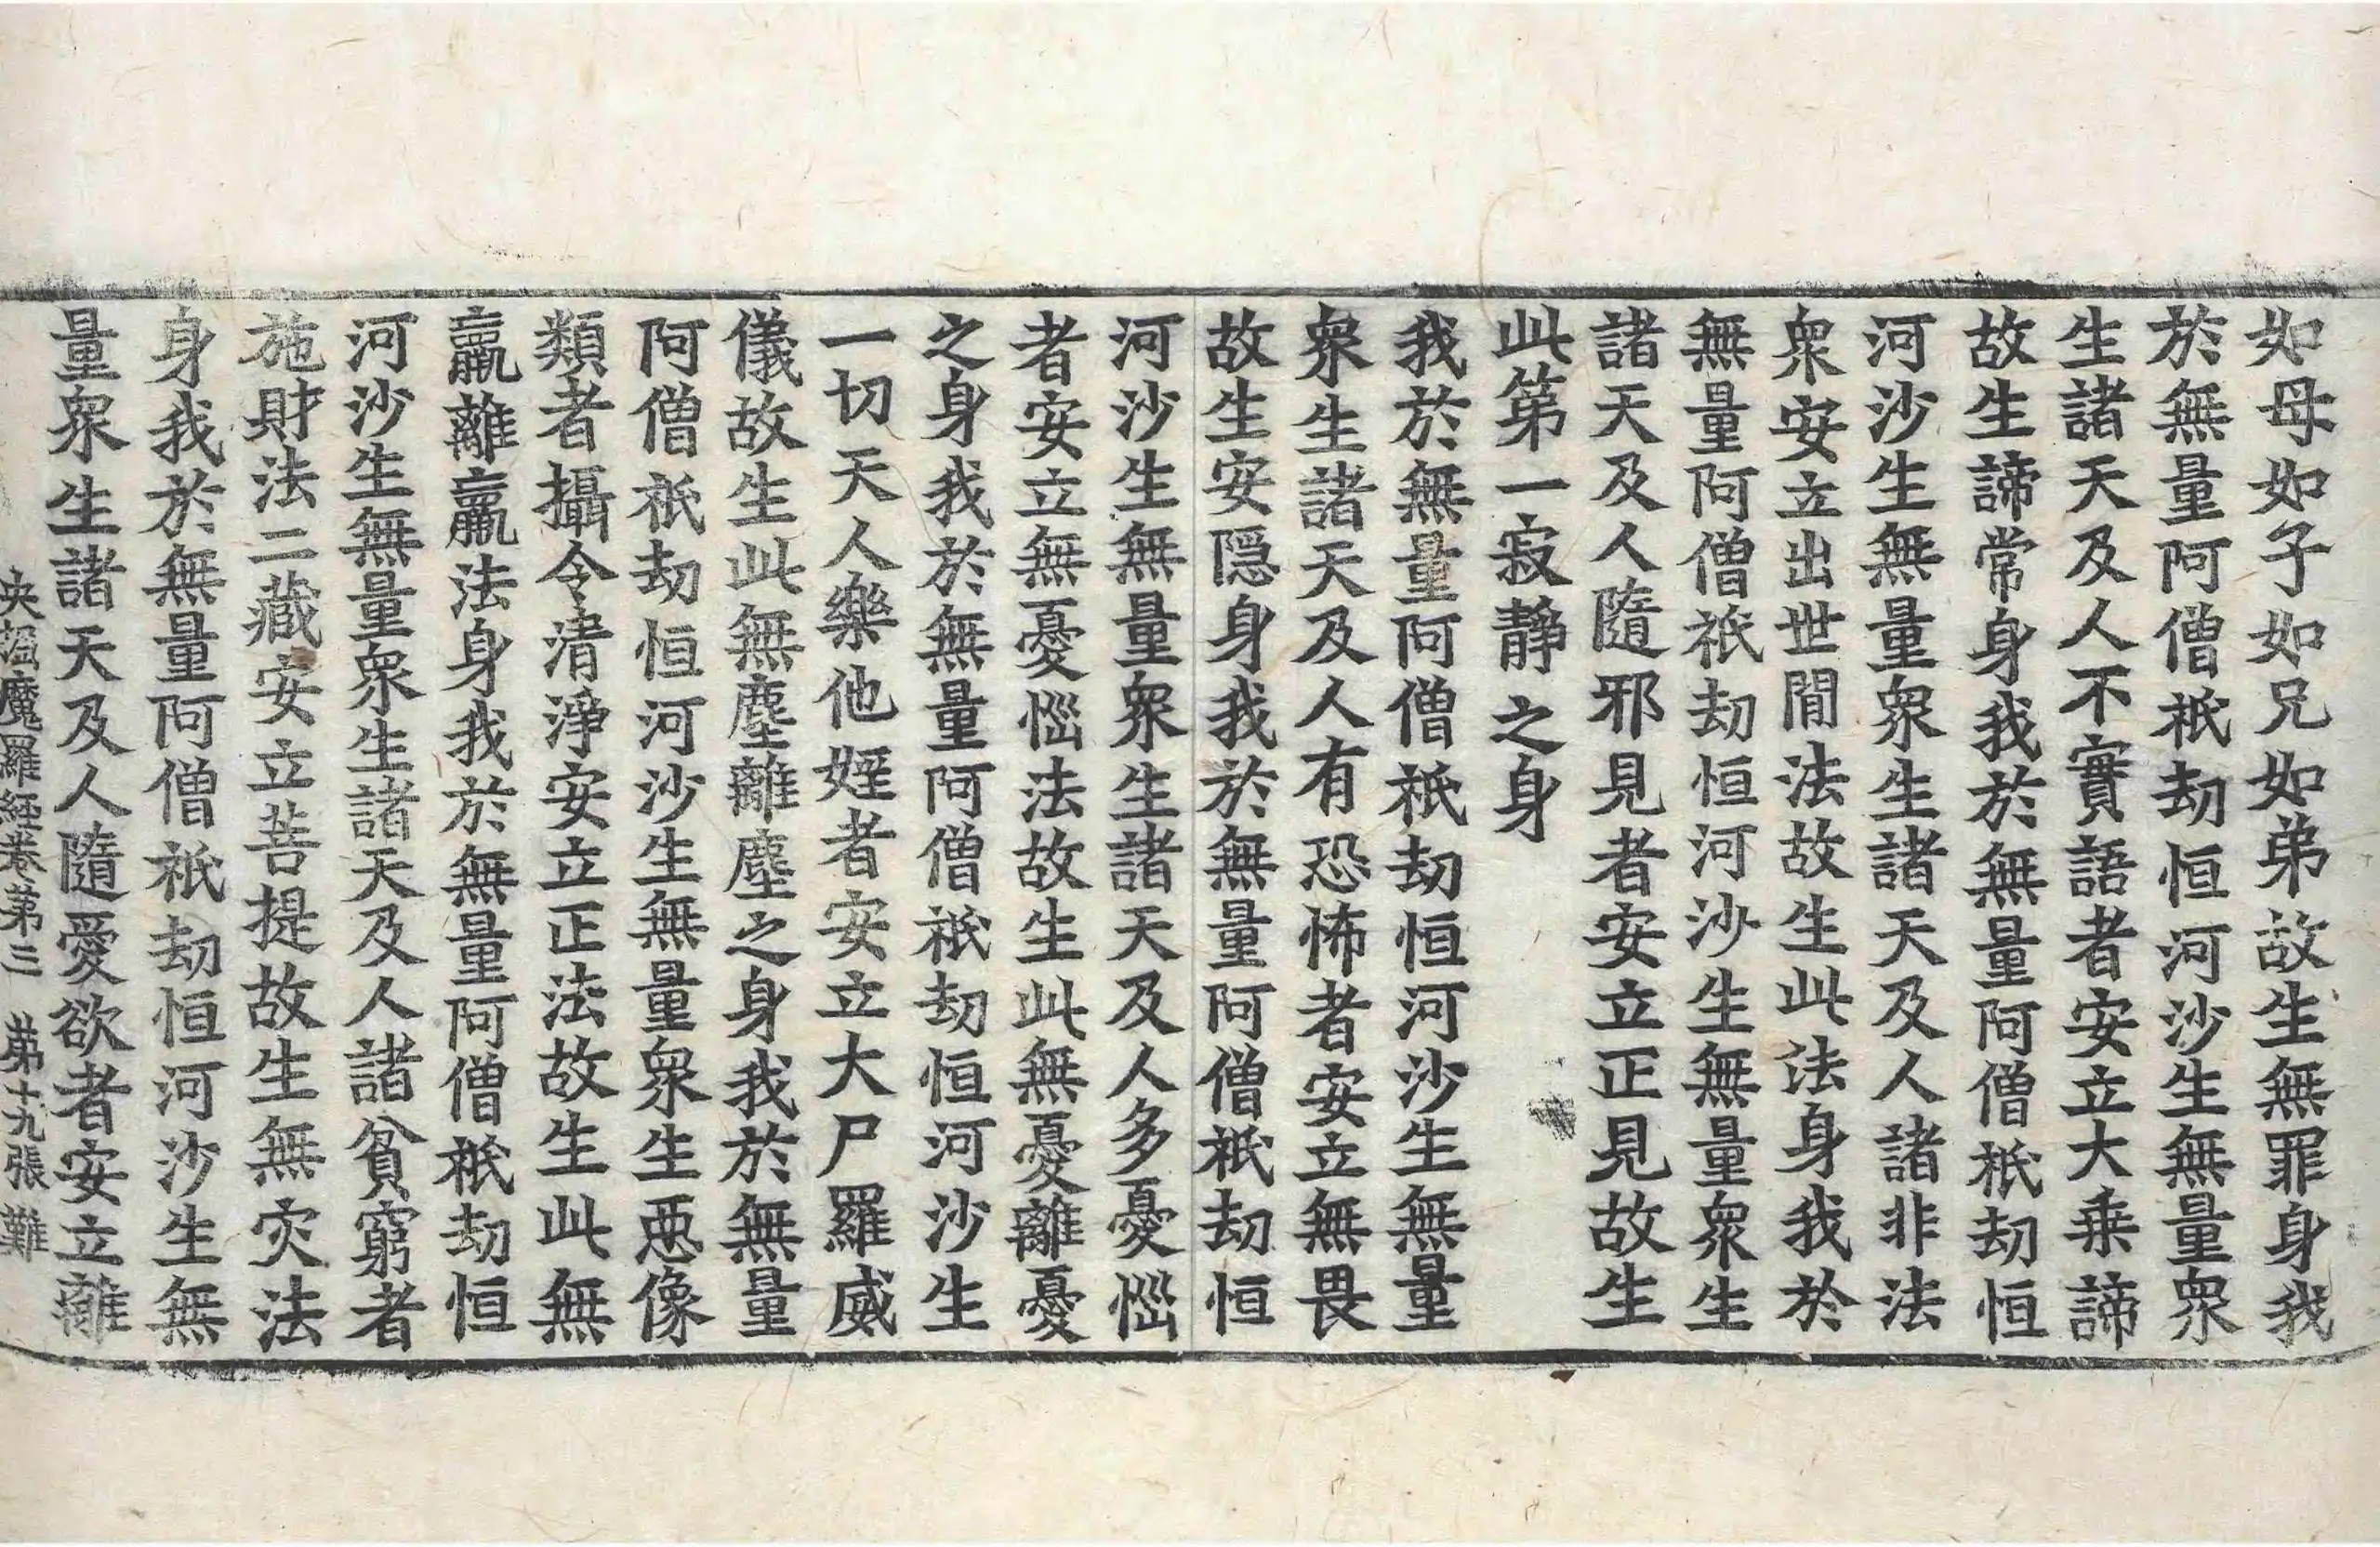 如母如子如兄如弟故生無罪身我
於無量阿僧祇劫恒河沙生無量衆
生諸天及人不實語者安立大乗諦
故生諦常身我於無量阿僧祇劫恒
河沙生無量衆生諸天及人諸非法
衆安立出世間法故生此法身我於
無量阿僧祇劫恒河沙生無量衆生
諸天及人隨邪見者安立正見故生
此第一寂靜之身
我於無量阿僧祇劫恒河沙生無量
衆生諸天及人有恐怖者安立無畏
故生安隠身我於無量阿僧祇劫恒
河沙生無量衆生諸天及人多憂惱
者安立無憂惱法故生此無憂離憂
之身我於無量阿僧祇劫恒河沙生
一切天人樂他婬者安立大尸羅威
儀故生此無塵離塵之身我於無量
阿僧祇劫恒河沙生無量衆生惡像
類者攝令清淨安立正法故生此無
羸離羸法身我於無量阿僧祇劫恒
河沙生無量衆生諸天及人諸貧窮者
施財法二藏安立菩提故生無灾法
身我於無量阿僧祇劫恒河沙生無
量衆生諸天及人隨愛欲者安立離
央掘魔羅経卷第三 第十九張 難